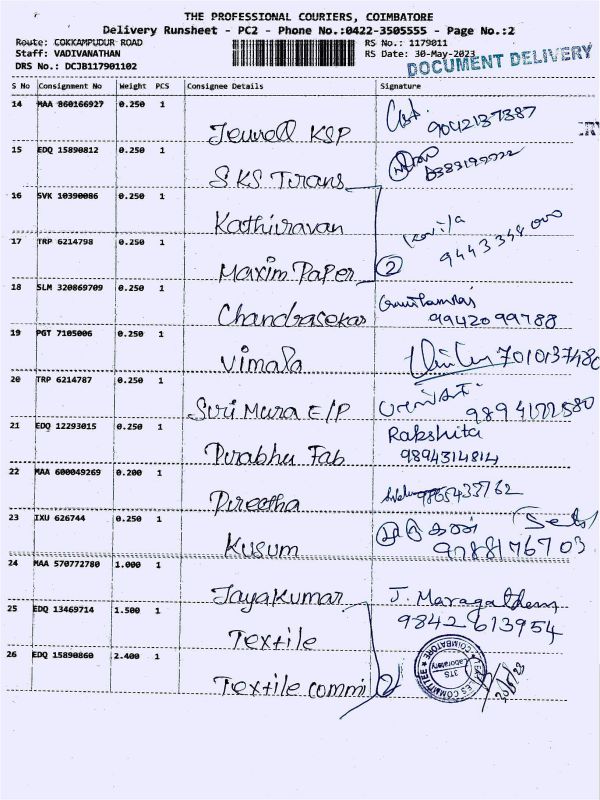 THE PROFESSIONAL COURIERS, COIMBATORE
Delivery Runsheet - PC2 - Phone No.:0422-3505555 - Page No.:2
Route: COKKAMPUDUR ROAD RS No.: 1179011
Staff: VADIVANATHAN RS Date: 30-May-2023
DRS No.: DCJB117901102
DOCUMENT DELIVERY
S No Consignment No Weight PCS Consignee Details Signature
14 MAA 860166927 0.250 1
Jewell KSP 9042137387
15 EDQ 15890812 0.250 1
SKS Trans
16 SVK 10390086 0.250 1
Kathiravan
17 TRP 6214798 0.250 1
Maxim Paper 2
18 SLM 320869709 0.250 1
Chandrasekar 9942099788
19 PGT 7105006 0.250 1
Vimala 7010137480
20 TRP 6214787 0.250 1
Suri Mura E/P
21 EDQ 12293015 0.250 1 Rakshita
Prabhu Fab 9894314814
22 MAA 600049269 0.200 1
Preetha 9865433762
23 IXU 626744 0.250 1
Kusum 9788176703
24 MAA 570772780 1.000 1
Jayakumar J. Maragatham
25 EDQ 13469714 1.500 1 9842613954
Textile
26 EDQ 15890860 2.400 1
Textile commi 2
COIMBATORE
3TS
Laboratory